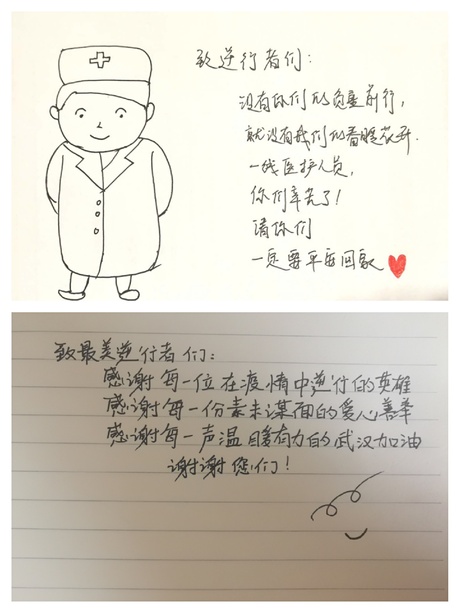 致逆行者们：
没有你们的负重前行，
就没有我们的春暖花开．
一线医护人员，
你们辛苦了！
请你们
一定要平安回家
致最美逆行者们：
感谢每一位在疫情中逆行的英雄
感谢每一份素未谋面的爱心善举
感谢每一声温暖有力的武汉加油
谢谢您们！